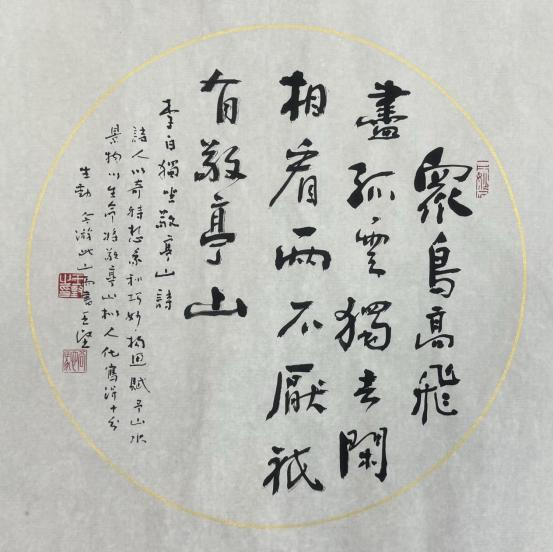 眾鳥高飛
盡孤雲獨去閑
相看兩不厭祇
有敬亭山
李白獨坐敬亭山詩
詩人以奇特想象和巧妙構思賦予山水
景物以生命將敬亭山擬人化寫得十分
生動今游此山而書王